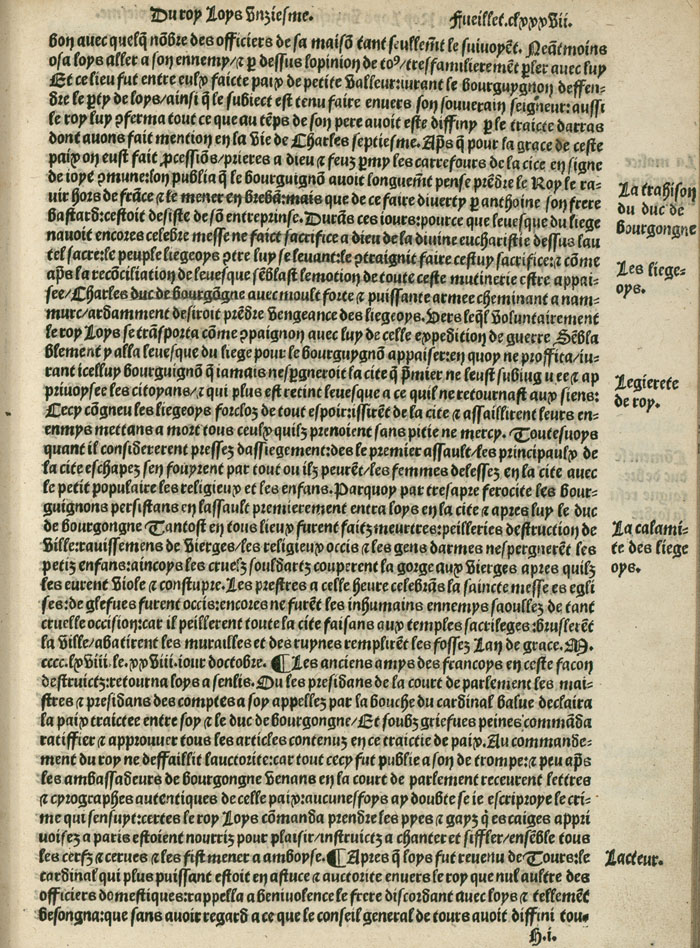 Du roy Loys Unziesme.
Fueillet.clxxxvii.
bon avec quelq̃ nõbre des officiers de sa maisõ tant seullem̃t le suivoyẽt. Neãtmoins
osa loys aller a son ennemy/⁊ p dessus lopinion de toꝰ/tresfamilierem̃t pler avec luy
Et ce lieu fut entre eulx faicte paix de petite valleur:iurant le bourguygnon deffen-
dre le pty de loys/ainsi q̃ le subiect est tenu faire envers son souverain seigneur:aussi
le roy luy ꝯferma tout ce que au tẽps de son pere avoit este diffiny p le traicte darras
dont avons fait mention en la vie de Charles septiesme. Ap̃s q̃ pour la grace de ceste
paix on eust fait ꝓcessiõs/prieres a dieu ⁊ feuz pmy les carrefours de la cite en signe
de ioye ꝯmune:lon publia q̃ le bourguignõ avoit longuem̃t pense prẽdre le Roy le ra-
vir hors de frãce ⁊ le mener en brebã:mais que de ce faire diverty p anthoine son frere
bastard:cestoit desiste de sõ entreprinse. Durãs ces iours:pource que levesque du liege
navoit encores celebre messe ne faict sacrifice a dieu de la divine eucharistie dessus lau
tel sacre:le peuple liegeoys ꝯtre luy se levant:le ꝯtraignit faire cestuy sacrifice:⁊ cõme
ap̃s la recõciliation de levesque sẽblast lemotion de toute ceste mutinerie estre appai-
see/Charles duc de bourgõgne avec moult forte ⁊ puissante armee cheminant a nam-
murc/ardamment desiroit prẽdre vengeance des liegeoys. Vers leq̃l voluntairement
le roy Loys se trãsporta cõme ꝯpaignon avec luy de celle expedition de guerre Sẽbla
blement y alla levesque du liege pour le bourguygnõ appaiser:en quoy ne proffita/iu-
rant icelluy bourguignõ q̃ iamais nespgneroit la cite q̃ p̃mier ne leust subiuguee ⁊ ap
privoysee les citoyans/⁊ qui plus est retint levesque a ce quil ne retournast aux siens:
Cecy cõgneu les liegeoys forcloz de tout espoir:issirẽt de la cite ⁊ assaillirent leurs en-
nemys mettans a mort tous ceulx quilz prenoient sans pitie ne mercy. Toutesvoys
quant il considererent pressez dassiegement:des le premier assault/les principaulx de
la cite eschapez sen fouyrent par tout ou ilz peurẽt/les femmes delessez en la cite avec
le petit populaire les religieux et les enfans. Parquoy par tresapre ferocite les bour-
guignons persistans en lassault premierement entra loys en la cite ⁊ apres luy le duc
de bourgongne Tantost en tous lieux furent faitz meurtres:peilleries destruction de
ville:ravissemens de vierges/les religieux occis ⁊ les gens darmes nespergnerẽt les
petiz enfans:aincoys les cruelz souldartz couperent la gorge aux vierges apres quilz
les eurent viole ⁊ constupre. Les prestres a celle heure celebrãs la saincte messe es egli
ses:de glefves furent occis:encores ne furẽt les inhumains ennemys saoullez de tant
cruelle occision:car il peillerent toute la cite faisans aux temples sacrileges:bruslerẽt
la ville/abatirent les murailles et des ruynes remplirẽt les fossez Lan de grace. M.
cccc.lxviii.le.xxviii.iour doctobre. ¶ Les anciens amys des francoys en ceste facon
destruictz:retourna loys a senlis. Ou les presidans de la court de parlement les mai-
stres ⁊ presidans des comptes a soy appellez par la bouche du cardinal balue declaira
la paix traictee entre soy ⁊ le duc de bourgongne/Et soubz griefves peines commãda
ratiffier ⁊ approuver tous les articles contenuz en ce traictie de paix. Au commande-
ment du roy ne deffaillit lauctorite:car tout cecy fut publie a son de trompe:⁊ peu ap̃s
les ambassadeurs de bourgongne venans en la court de parlement receurent lettres
⁊ cyrographes autentiques de celle paix:aucunesfoys ay doubte se ie escriproye le cri-
me qui sensuyt:certes le roy Loys cõmanda prendre les pyes ⁊ gayz q̃ es caiges appri
voisez a paris estoient nourriz pour plaisir/instruictz a chanter et siffler/ensẽble tous
les cerfz ⁊ cerves ⁊ les fist mener a amboyse. ¶ Apres q̃ loys fut revenu de Tours:le
cardinal qui plus puissant estoit en astuce ⁊ auctorite envers le roy que nul aultre des
officiers domestiques:rappella a benivolence le frere discordant avec loys ⁊ tellemẽt
besongna:que sans avoir regard a ce que le conseil general de tours avoit diffini tou-
H.i.
La trahison
du duc de
bourgongne
Les liege-
oys.
Legierete
de roy.
La calami-
te des liege
oys.
Lacteur.